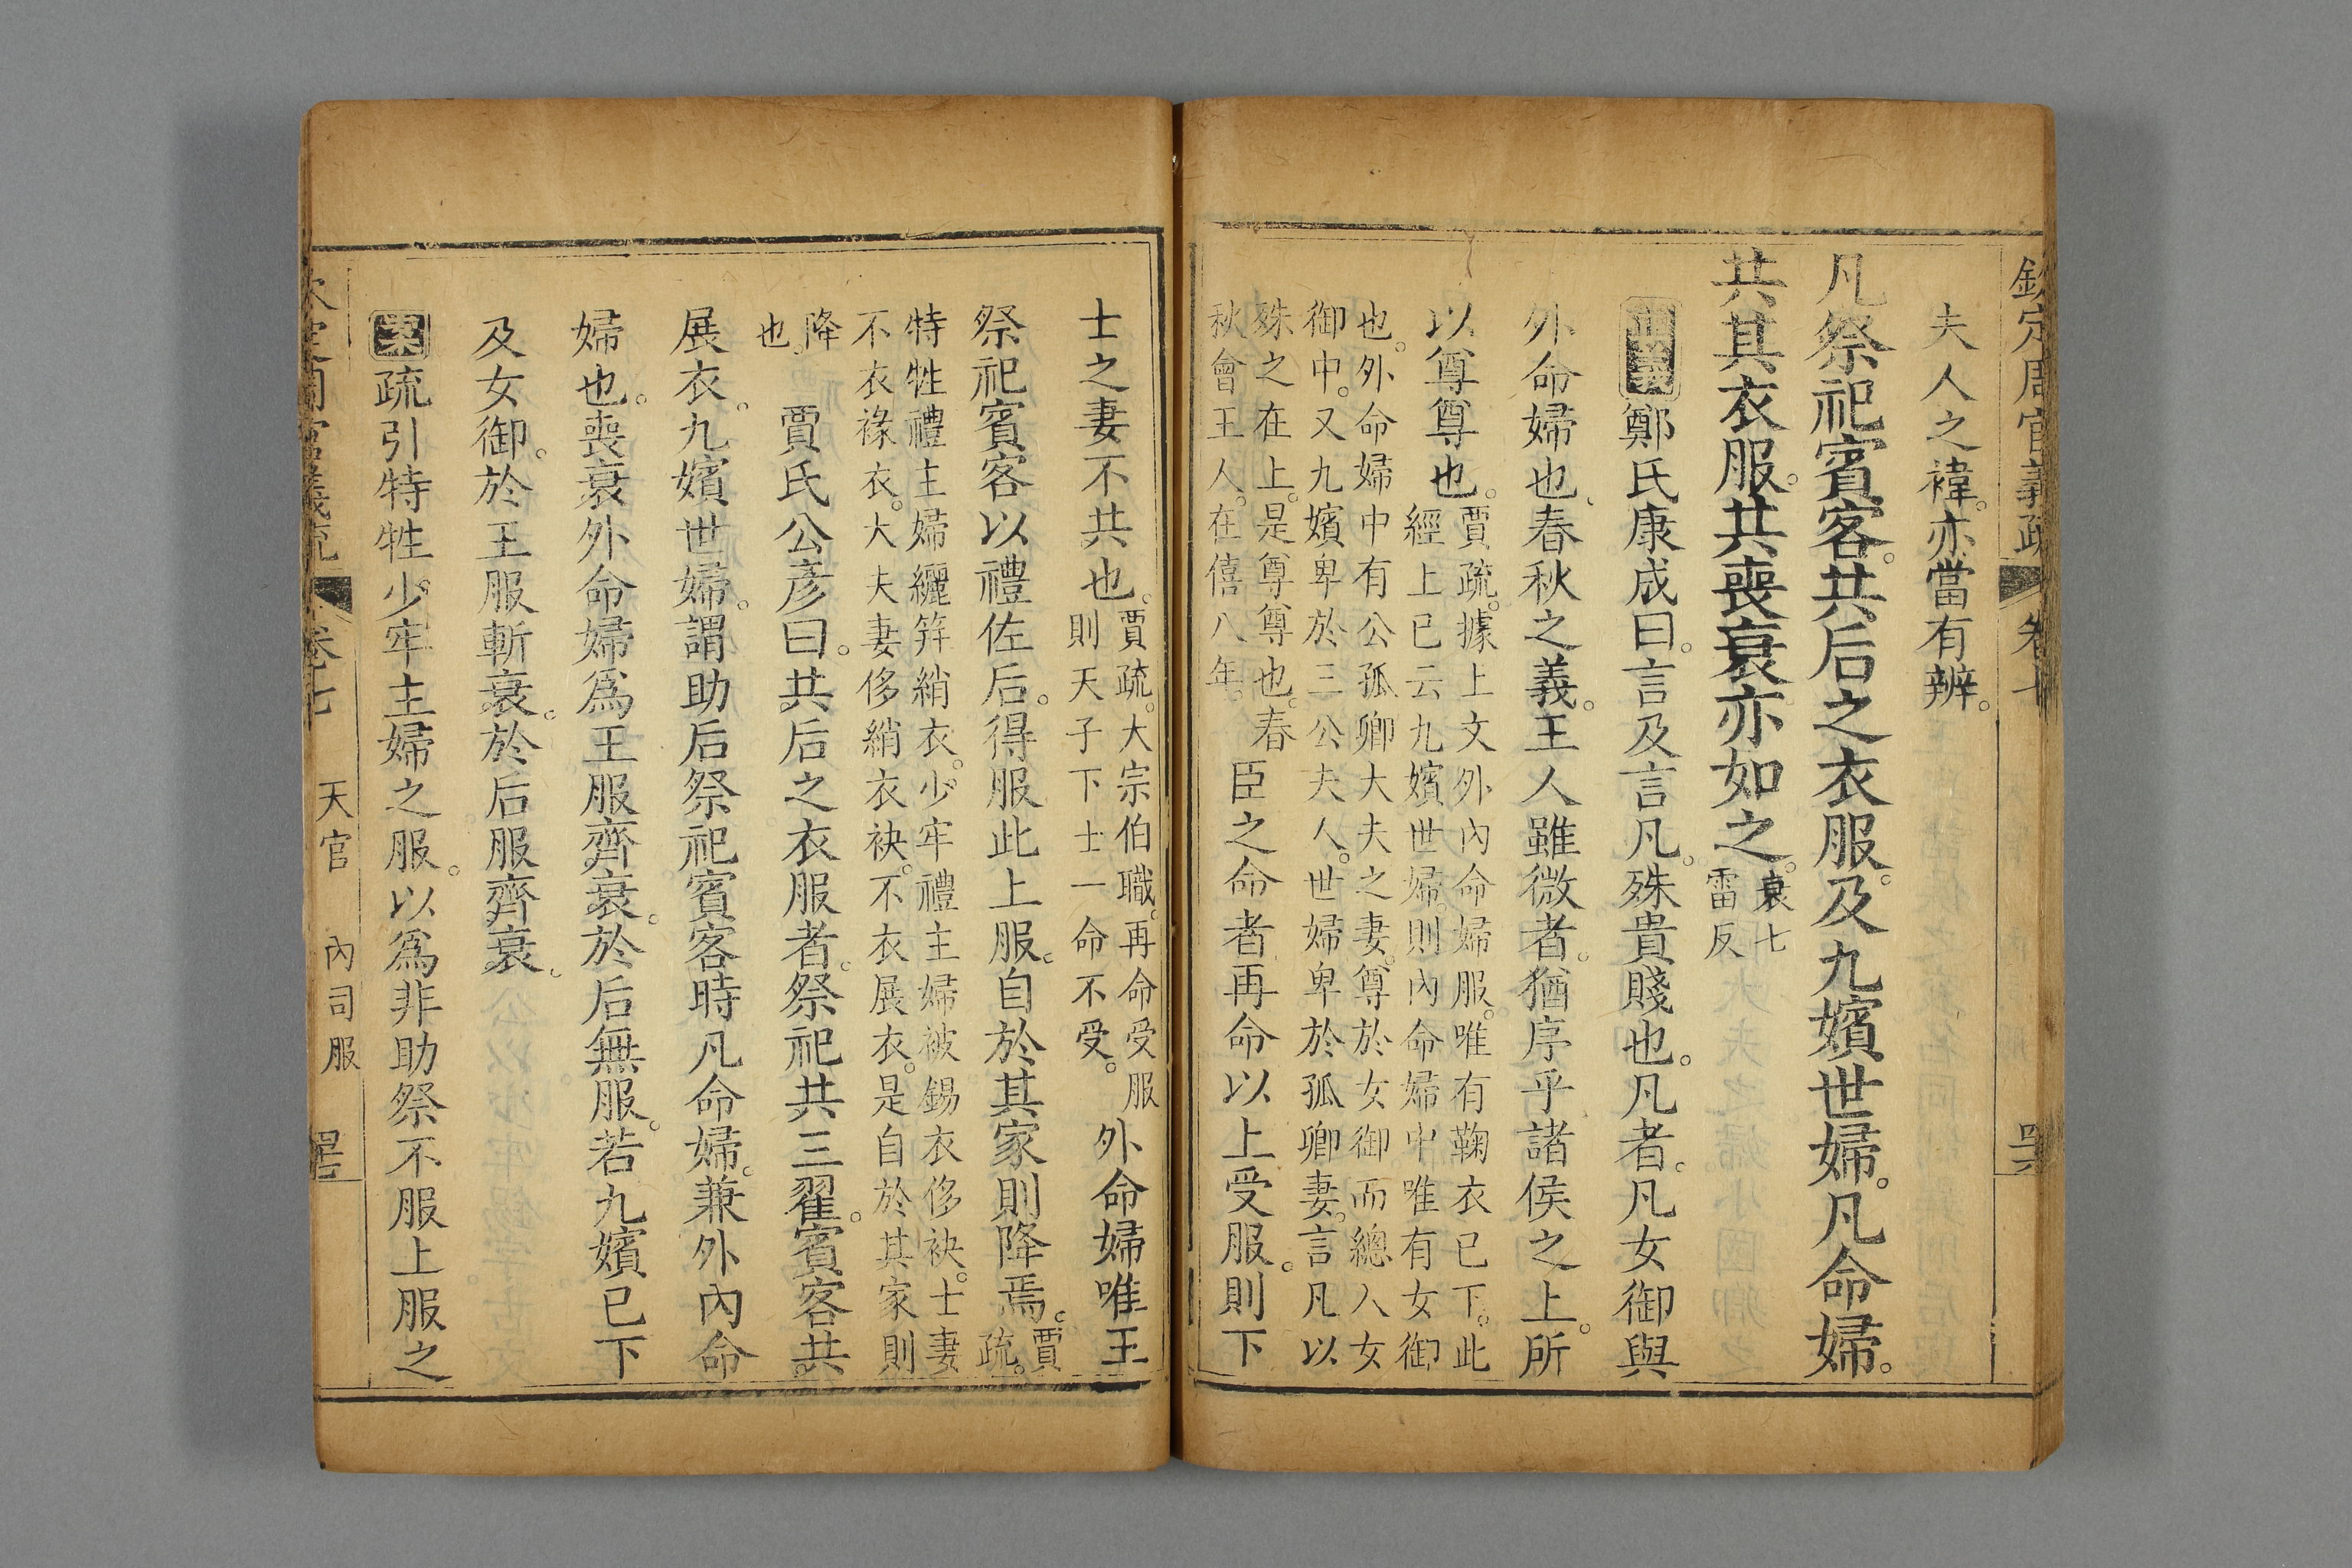 欽定周官義疏 卷七
夫人之褘。亦當有辨。
凡祭祀賓客。共后之衣服。及九嬪世婦。凡命婦。
共其衣服。共喪衰亦如之。衰七
雷反
正義鄭氏康成曰。言及言凡。殊貴賤也。凡者。凡女御與
外命婦也、春秋之義。王人雖微者。猶序乎諸侯之上。所
以尊尊也。賈疏。據上文外內命婦服。唯有鞠衣已下。此
經上已云九嬪世婦。則內命婦中唯有女御
也。外命婦中有公孤卿大夫之妻。尊於女御。而總入女
御中。又九嬪卑於三公夫人。世婦卑於孤卿妻。言凡以
殊之在上。是尊尊也。春
秋會王人。在僖八年。臣之命者再命以上受服。則下
士之妻不共也。賈疏。大宗伯職。再命受服
則天子下士一命不受。外命婦唯王
祭祀賓客以禮佐后。得服此上服。自於其家則降焉。賈
疏。
特牲禮主婦纚笄綃衣。少牢禮主婦被錫衣侈袂。士妻
不衣褖衣。大夫妻侈綃衣袂。不衣展衣。是自於其家則
降
也。賈氏公彥曰。共后之衣服者。祭祀共三翟。賓客共
展衣。九嬪世婦。謂助后祭祀賓客時凡命婦。兼外內命
婦也。喪衰外命婦爲王服齊衰。於后無服。若九嬪已下
及女御。於王服斬衰。於后服齊衰。
案疏引特牲少牢主婦之服。以爲非助祭不服上服之
欽定周官義疏 卷七 天官 內司服